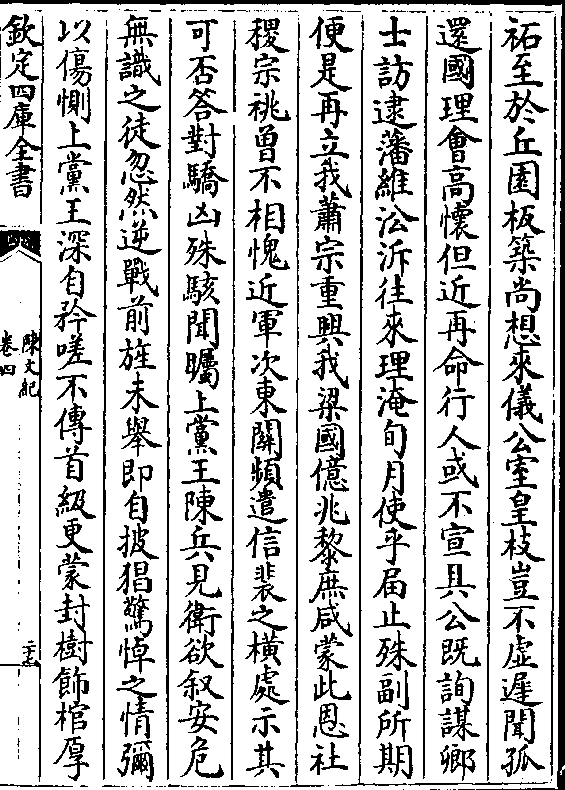 祏至於丘園板築尚想來儀公室皇枝豈不虚遲聞孤
還國理會高懷但近再命行人或不宣具公既詢謀鄉
士訪逮藩維沿泝往來理淹旬月使乎屆止殊副所期
便是再立我蕭宗重興我梁國億兆黎庶咸蒙此恩社
稷宗祧曽不相愧近軍次東闗頻遣信裴之横處示其
可否答對驕凶殊駭聞矚上黨王陳兵見衛欲叙安危
無識之徒忽然逆戰前旌未舉即自披猖驚悼之情彌
以傷惻上黨王深自矜嗟不傳首級更蒙封樹飾棺厚
欽定四庫全書
陳文紀
卷四